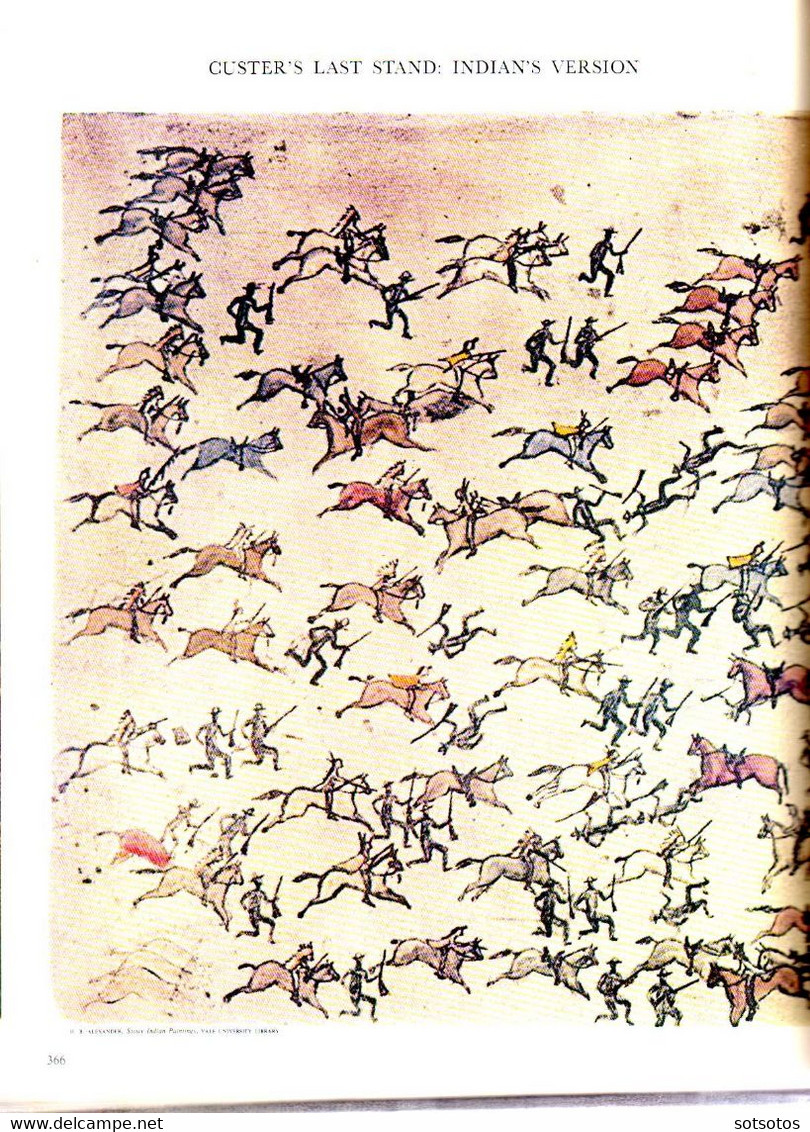 CUSTER'S LAST STAND: INDIAN'S VERSION
H. B. ALEXANDER, Sioux Indian Paintings, YALE UNIVERSITY LIBRARY
366
delcampe.net
sotsotos